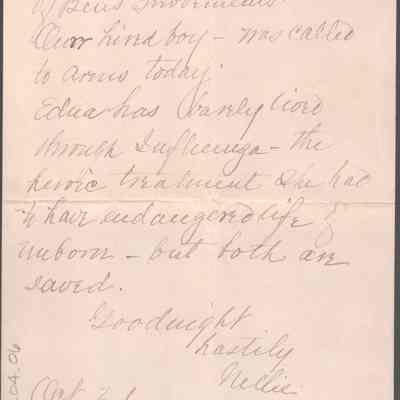 of Ben's movements.
Our hired boy - was called
to arms today.
Edna has barely lived
through Influenza - the
heroic treatment she had
to have endangered life of
unborn - but both are
saved.
Goodnight
hastily
Nellie
Oct
04.06